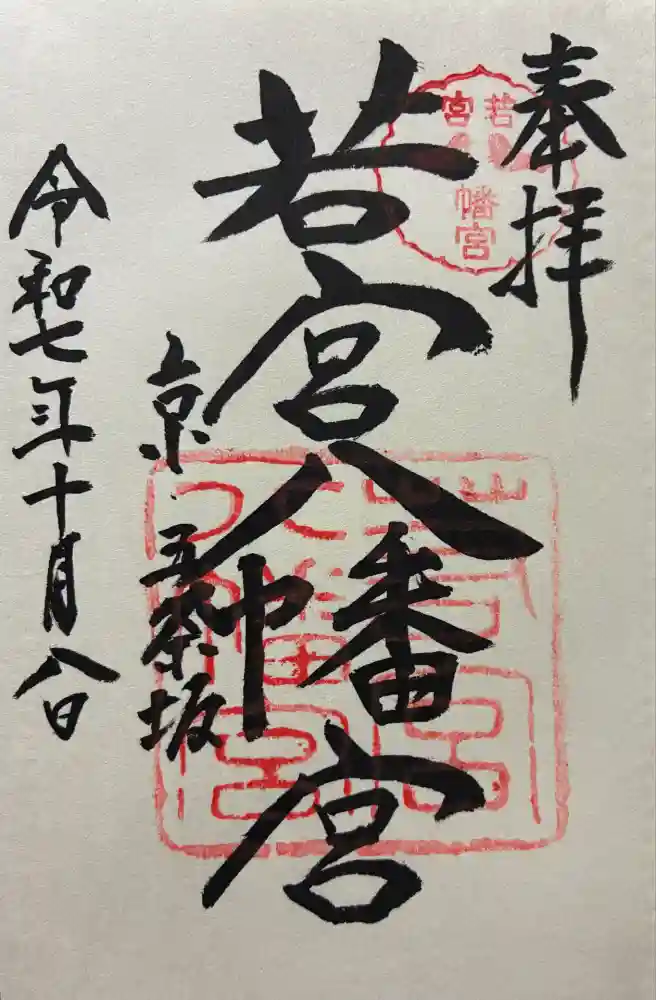 奉拝
若宮
八幡宮
若宮八幡宮
京 五条坂
令和七年十月八日
若宮
八幡宮